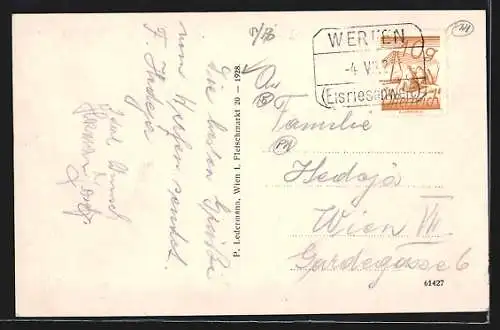 Die besten Grüße
aus Werfen sendet
F. Hedoja
P. Ledermann, Wien I. Fleischmarkt 20 — 1928
WERFEN
-4 V
(Eisriesenwelt)
An
Familie
Hedoja
Wien VII
Gardegasse 6
61427